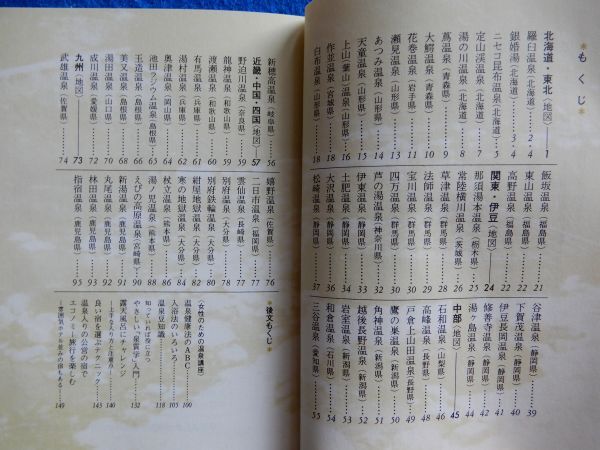 *もくじ*
北海道・東北(地図) 1
羅臼温泉(北海道) 2・4
銀婚湯(北海道) 3・4
ニセコ昆布温泉(北海道) 5
定山渓温泉(北海道) 6
湯の川温泉(北海道) 7
蔦温泉(青森県) 9
大鰐温泉(青森県) 10
花巻温泉(岩手県) 11
瀬見温泉(山形県) 12
あつみ温泉(山形県) 14
天童温泉(山形県) 15
上山葉山温泉(山形県) 16
作並温泉(宮城県) 18
白布温泉(山形県) 18
飯坂温泉(福島県) 21
東山温泉(福島県) 22
高野温泉(福島県) 22
関東・伊豆(地図) 24
那須湯本温泉(栃木県) 25
常陸横川温泉(茨城県) 26
草津温泉(群馬県) 28
法師温泉(群馬県) 29
宝川温泉(群馬県) 30
四万温泉(群馬県) 31
芦の湯温泉(神奈川県) 32
伊東温泉(静岡県) 33
土肥温泉(静岡県) 34
大沢温泉(静岡県) 36
松崎温泉(静岡県) 37
谷津温泉(静岡県) 39
下賀茂温泉(静岡県) 40
伊豆長岡温泉(静岡県) 41
修善寺温泉(静岡県) 42
湯ヶ島温泉(静岡県) 44
中部(地図) 45
石和温泉(山梨県) 46
高峰温泉(長野県) 48
戸倉上山田温泉(長野県) 49
鷹の巣温泉(新潟県) 50
角神温泉(新潟県) 51
越後長野温泉(新潟県) 52
岩室温泉(新潟県) 53
和倉温泉(石川県) 54
三谷温泉(愛知県) 55
新穂高温泉(岐阜県) 56
近畿・中国・四国(地図) 57
野迫川温泉(奈良県) 59
龍神温泉(和歌山県) 59
渡瀬温泉(和歌山県) 60
有馬温泉(兵庫県) 62
湯村温泉(兵庫県) 63
奥津温泉(岡山県) 64
池田ラジウム温泉(島根県) 65
玉造温泉(島根県) 66
美又温泉(島根県) 68
湯田温泉(山口県) 70
成川温泉(愛媛県) 71
九州(地図) 73
武雄温泉(佐賀県) 74
嬉野温泉(佐賀県) 76
二日市温泉(福岡県) 77
雲仙温泉(長崎県) 77
別府温泉(大分県) 78
別府鉄輪温泉(大分県) 80
紺屋地獄温泉(大分県) 82
寒の地獄温泉(大分県) 84
杖立温泉(熊本県) 86
湯ノ児温泉(熊本県) 88
えびの高原温泉(宮崎県) 90
新湯温泉(鹿児島県) 91
丸尾温泉(鹿児島県) 92
林田温泉(鹿児島県) 93
指宿温泉(鹿児島県) 95
*後文もくじ*
〔女性のための温泉講座〕
温泉健康法のABC 100
入浴法のいろいろ 105
温泉豆知識 118
知っていれば役に立つ
やさしい"泉質学"入門 132
露天風呂にチャレンジ 140
良い宿を選ぶテクニック 143
温泉入りの公営の宿で
エコノミー旅行を楽しむ 149